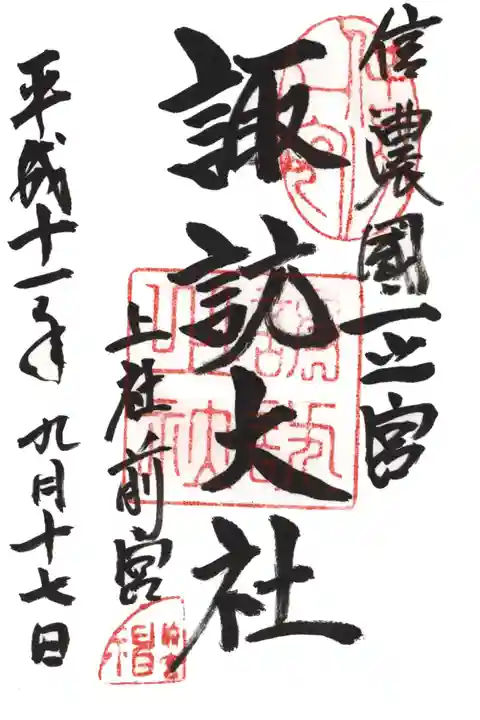 信濃國一之宮
諏訪大社
上社前宮
平成十一年九月十七日